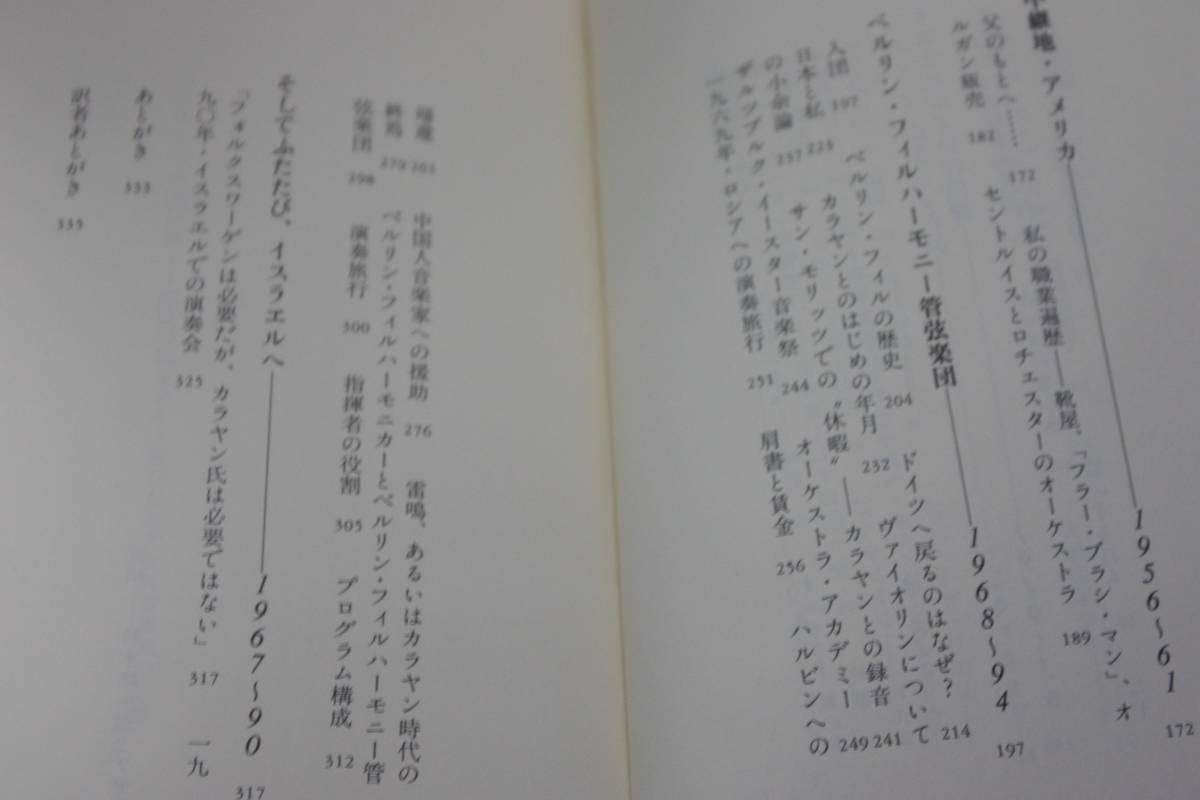 中継地・アメリカ――1956〜61 172
父のもとへ…… 172 私の職業遍歴――靴屋、「フラー・ブラシ・マン」、オ
ルガン販売 182 セントルイスとロチェスターのオーケストラ 189
ベルリン・フィルハーモニー管弦楽団――1968〜94 197
入団 197 ベルリン・フィルの歴史 204 ドイツへ戻るのはなぜ? 214
日本と私 223 カラヤンとのはじめの年月 232 ヴァイオリンについて
の小余論 237 サン・モリッツでの〝休暇〟――カラヤンとの録音 241
ザルツブルク・イースター音楽祭 244 オーケストラ・アカデミー 249
一九六九年・ロシアへの演奏旅行 251 肩書と賃金 256 ハルビンへの
帰還 263 中国人音楽家への援助 276 雷鳴、あるいはカラヤン時代の
終焉 279 ベルリン・フィルハーモニカーとベルリン・フィルハーモニー管
弦楽団 298 演奏旅行 300 指揮者の役割 305 プログラム構成 312
そしてふたたび、イスラエルへ――1967〜90 317
「フォルクスワーゲンは必要だが、カラヤン氏は必要ではない」 317 一九
九〇年・イスラエルでの演奏会 325
あとがき 333
訳者あとがき 335